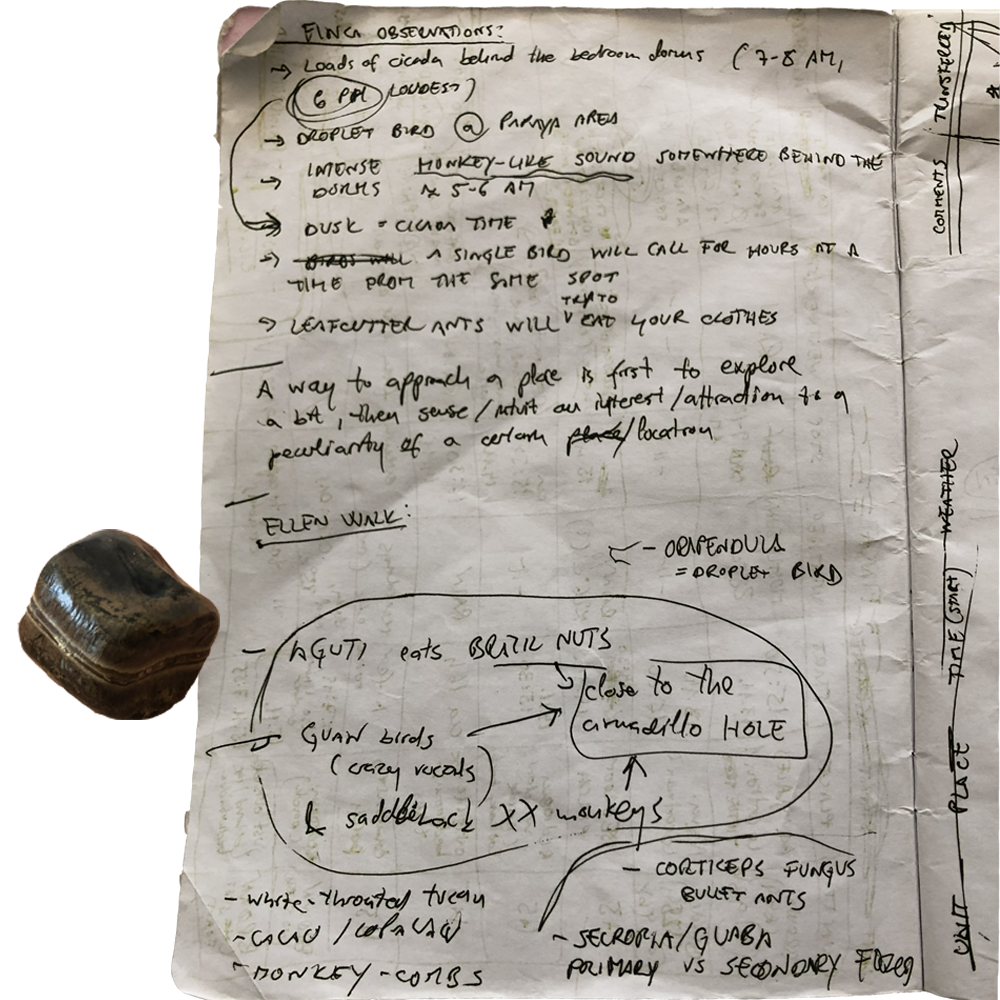 FINCA OBSERVATIONS:
→ Loads of cicada behind the bedroom dorms (7-8 AM,
6 PM LOUDEST)
→ DROPLET BIRD @ PAPAYA AREA
→ INTENSE MONKEY-LIKE SOUND SOMEWHERE BEHIND THE
DORMS ~ 5-6 AM
→ DUSK = CICADA TIME
→ BIRDS WILL A SINGLE BIRD WILL CALL FOR HOURS AT A
TIME FROM THE SAME SPOT
TRY TO
→ LEAFCUTTER ANTS WILL ∨ EAT YOUR CLOTHES
A way to approach a place is first to explore
a bit, then sense/intuit an interest/attraction to a
peculiarity of a certain place/location
ELLEN WALK:
- OROPENDULA
= DROPLET BIRD
- AGUTI eats BRAZIL NUTS
close to the
armadillo HOLE
- GUAN birds
(crazy vocals)
& saddleback XX monkeys
- CORTICEPS FUNGUS
BULLET ANTS
- white-throated tucan
- CACAO / COPACAO
- MONKEY-COMBS
- SECROPIA/GUABA
PRIMARY VS SECONDARY FOREST
UNIT PLACE TIME (START) WEATHER
COMMENTS TRANSFERRED